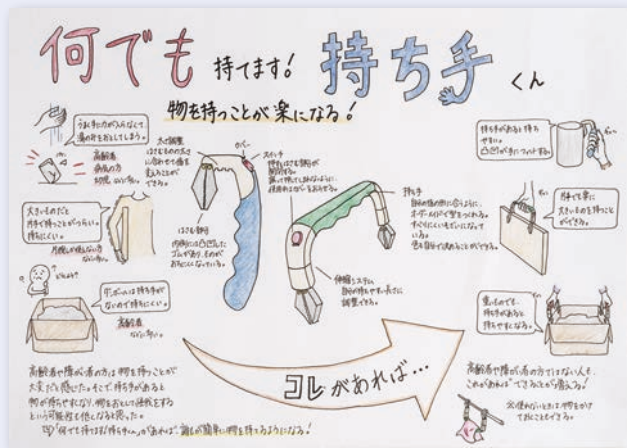 何でも持てます! 持ち手くん
物を持つことが楽になる!
うまく手に力が入らなくて、
湯のみをおとしてしまう。
高齢者
病気の方
幼児 などに多い。
大きいものだと
片手で持つことがつらい。
持ちにくい。
片腕しか使えない方
などに多い。
どうしよう?
ダンボールは持ち手が
ないので持ちにくい。
高齢者
などに多い。
太さ調整
はさむものの太さ
に合わせて幅を
変えることが
できる。
カバー
スイッチ
押すとはさむ部分が
開閉する。
はさむ部分
内側には凸凹した
ゴムがあり、ものが
おちにくくなっている。
持ち手
自分の指の形に合うように、
オーダーメイドで型をつくれる。
すべりにくいそざいになって
いる。
色も自分で決めることができる。
伸縮システム
自分が持ちやすい長さに
調整できる。
持ち手があると持ち
やすい。
凸凹が手にフィットする。
片手で楽に
大きいものを持つこと
ができる。
重いものでも、
持ち手があると
持ちやすくなる。
コレがあれば…
高齢者や障がい者の方は物を持つことが
大変だと感じた。そこで、持ち手があると
物が持ちやすくなり、物をおとして怪我をする
という可能性も低くなると思った。
「何でも持てます「持ち手くん」」があれば、誰もが簡単に物を持てるようになる!
高齢者や障がい者の方ではない人も、
これがあれば"できる"ことが増える!
使わないときは物をかけ
ておくこともできる。